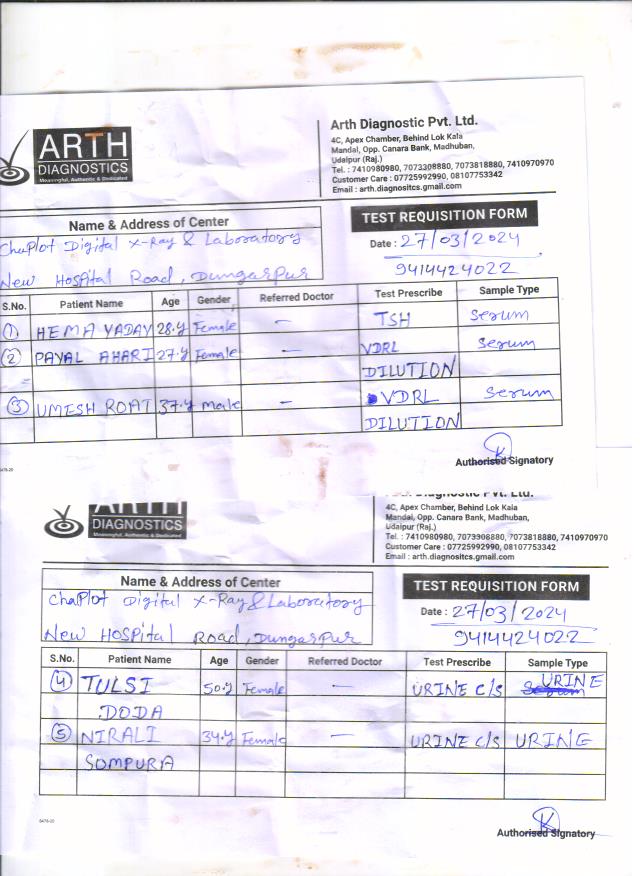 ARTH
DIAGNOSTICS
Meaningful, Authentic & Dedicated
Arth Diagnostic Pvt. Ltd.
4C, Apex Chamber, Behind Lok Kala
Mandal, Opp. Canara Bank, Madhuban,
Udaipur (Raj.)
Tel. : 7410980980, 7073308880, 7073818880, 7410970970
Customer Care : 07725992990, 08107753342
Email : arth.diagnositcs.gmail.com
Name & Address of Center
Chaplot Digital X-Ray & Laboratory
New Hospital Road, Dungarpur
TEST REQUISITION FORM
Date : 27/03/2024
9414424022
S.No. Patient Name Age Gender Referred Doctor Test Prescribe Sample Type
1 HEMA YADAV 28.y Female — TSH Serum
2 PAYAL AHARI 27.y Female — VDRL Serum
DILUTION
3 UMESH ROAT 37.y male — VDRL Serum
DILUTION
Authorised Signatory
6478-20
ARTH
DIAGNOSTICS
Meaningful, Authentic & Dedicated
Diagnostic Pvt. Ltd.
4C, Apex Chamber, Behind Lok Kala
Mandal, Opp. Canara Bank, Madhuban,
Udaipur (Raj.)
Tel. : 7410980980, 7073308880, 7073818880, 7410970970
Customer Care : 07725992990, 08107753342
Email : arth.diagnositcs.gmail.com
Name & Address of Center
Chaplot Digital X-Ray & Laboratory
New Hospital Road, Dungarpur
TEST REQUISITION FORM
Date : 27/03/2024
9414424022
S.No. Patient Name Age Gender Referred Doctor Test Prescribe Sample Type
4 TULSI 50.y Female — URINE C/S Serum URINE
DODA
5 NIRALI 34.y Female — URINE C/S URINE
SOMPURA
6478-20
Authorised Signatory